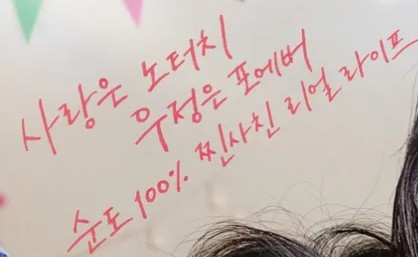 사랑은 노터치
우정은 포에버
순도 100% 찐사친 리얼 라이프